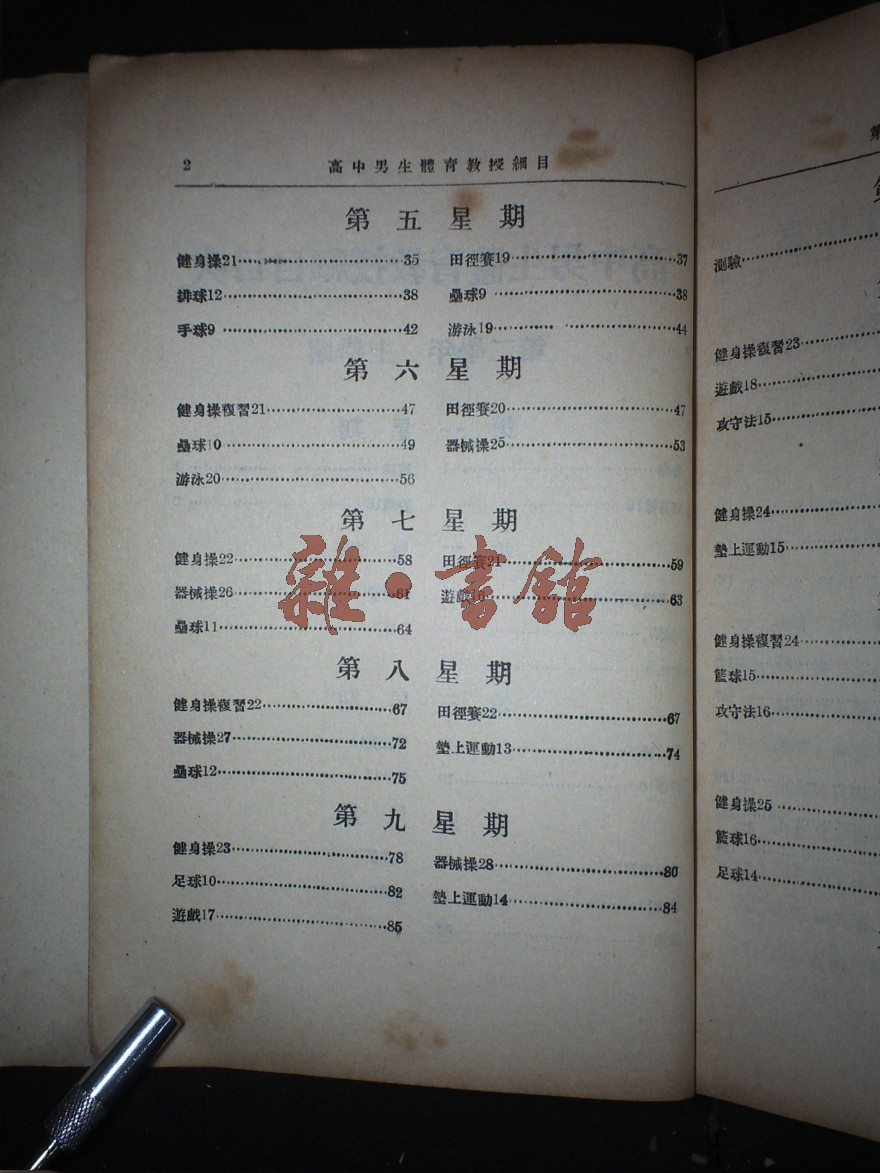 2 高中男生體育教授細目
第五星期
健身操21 35 田徑賽19 37
排球12 38 壘球9 38
手球9 42 游泳19 44
第六星期
健身操複習21 47 田徑賽20 47
壘球10 49 器械操25 53
游泳20 56
第七星期
健身操22 58 田徑賽21 59
器械操26 61 遊戲16 63
壘球11 64
雜·書館
第八星期
健身操複習22 67 田徑賽22 67
器械操27 72 墊上運動13 74
壘球12 75
第九星期
健身操23 78 器械操28 80
足球10 82 墊上運動14 84
遊戲17 85
第
測驗
健身操複習23
遊戲18
攻守法15
健身操24
墊上運動15
健身操複習24
籃球15
攻守法16
健身操25
籃球16
足球14